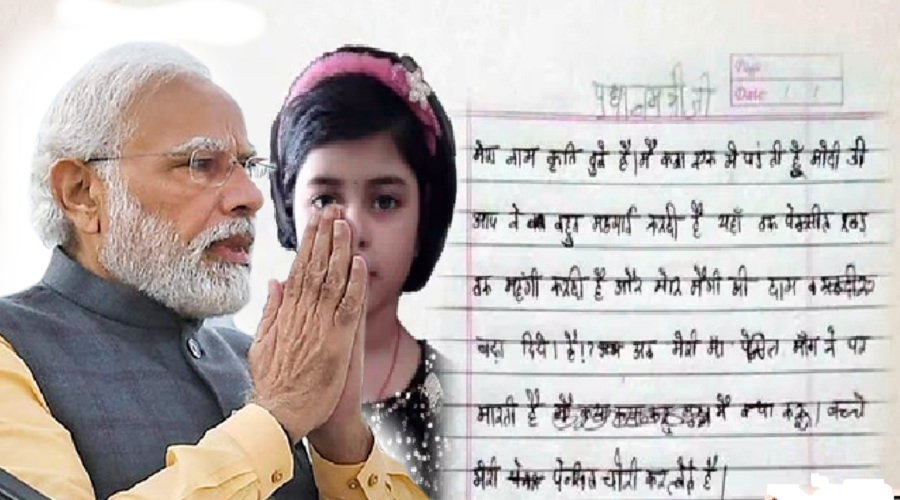 प्रधानमंत्री जी
Page
Date / /
मेरा नाम कृति दुबे है। मैं कक्षा एक में पढ़ती हूँ मोदी जी
आप ने बहुत महगाई करदी है यहाँ तक पेन्सील रबड़
तक महंगी करदी है और मेरा मैगी की दाम
बढ़ा दिये। है!? अब मेरी मा पेन्सिल माँग ने पर
मारती है मैं क्या करू। बच्चे
मेरी पेन्सिल चोरी कर लेते है।